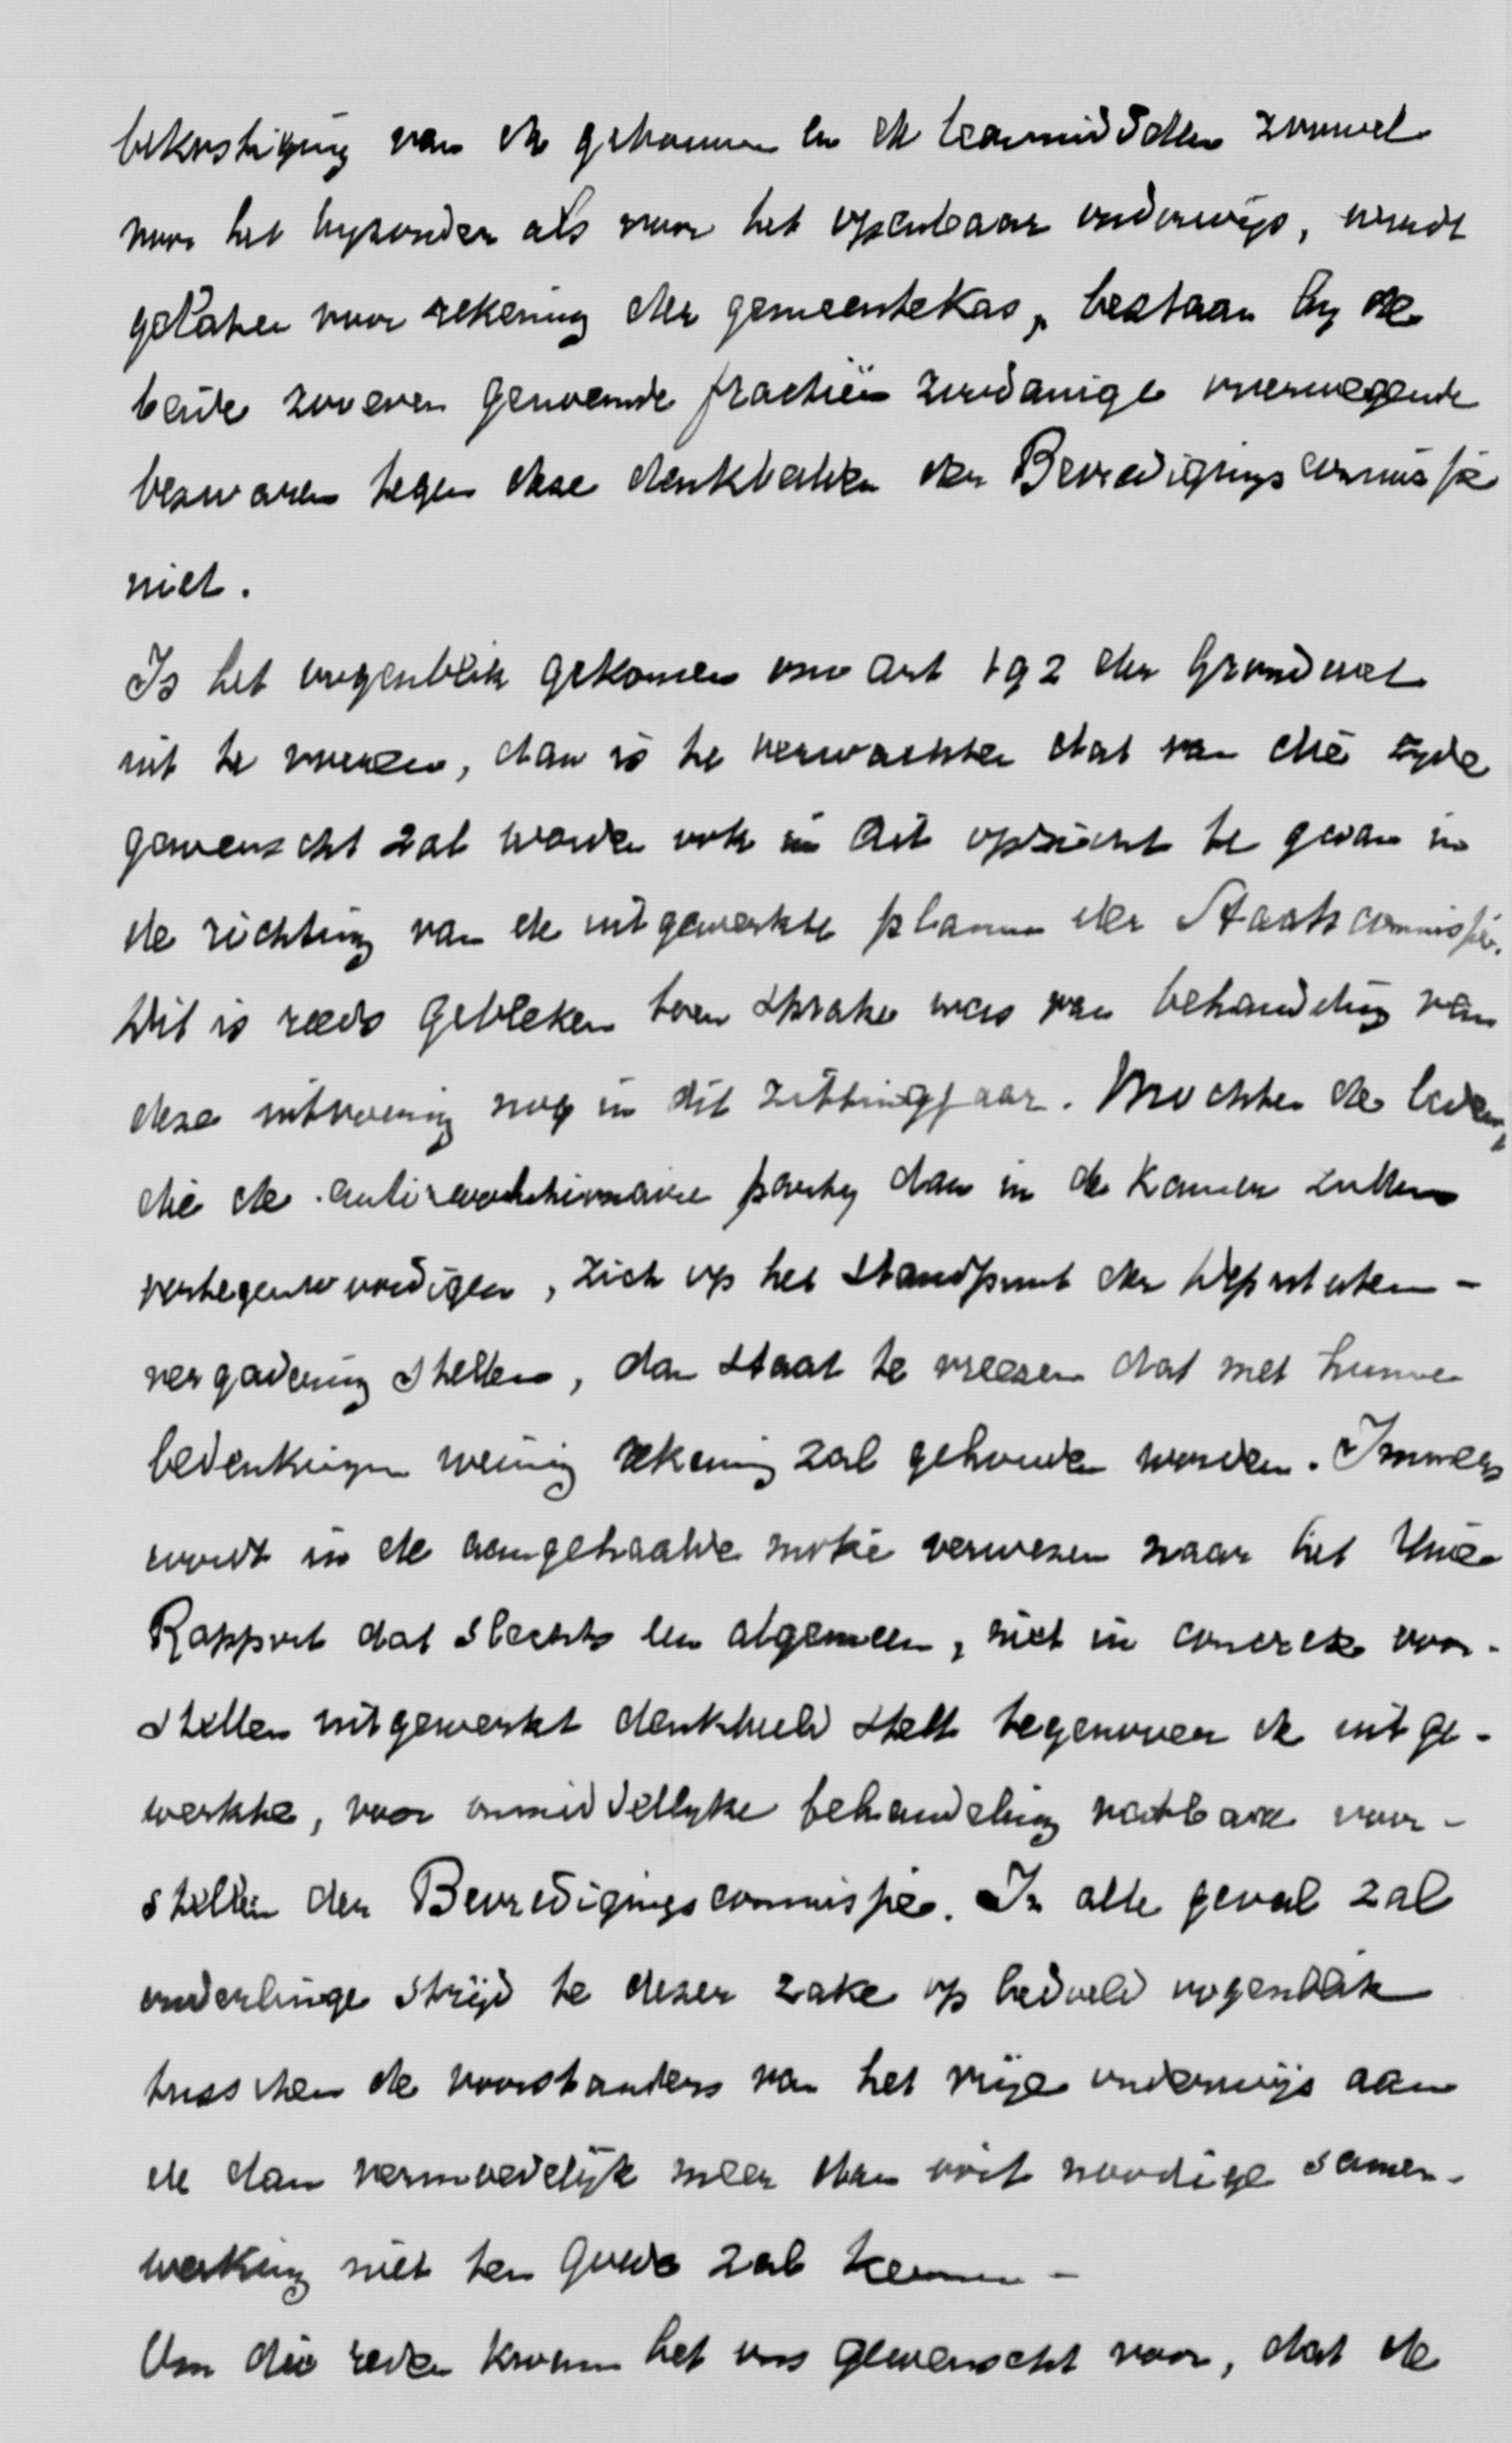 bekostiging van de gebouwen en de leermiddelen zoowel
voor het byzonder als voor het openbaar onderwijs, wordt
gelaten voor rekening der gemeentekas, bestaan by de
beide zooeven genoemde fractiën zoodanige overwegende
bezwaren tegen deze denkbeelden der Bevredigingscommissie
niet.
Is het oogenblik gekomen om art 192 der Grondwet
uit te voeren, dan is te verwachten dat van die zyde
gewenscht zal worden ook in dit opzicht te gaan in
de richting van de uitgewerkte plannen der Staatscommissie.
Dit is reeds gebleken toen sprake was van behandeling van
deze uitvoering nog in dit zittingjaar. Mochten de leden,
die de antirevolutionaire party dan in de Kamer zullen
vertegenwoordigen, zich op het standpunt der Deputaten-
vergadering stellen, dan staat te vreezen dat met hunne
bedenkingen weinig rekening zal gehouden worden. Immers
wordt in de aangehaalde motie verwezen naar het Unie
Rapport dat slechts een algemeen, niet in concrete voor-
stellen uitgewerkt denkbeeld stelt tegenover de uitge-
werkte, voor onmiddellyke behandeling vatbare voor-
stellen der Bevredigingscommissie. In elk geval zal
onderlinge strijd te dezer zake op bedoeld oogenblik
tusschen de voorstanders van het vrije onderwijs aan
de dan vermoedelijk meer dan ooit noodige samen-
werking niet ten goede zal komen-
Om die reden kwam het ons gewenscht voor, dat de